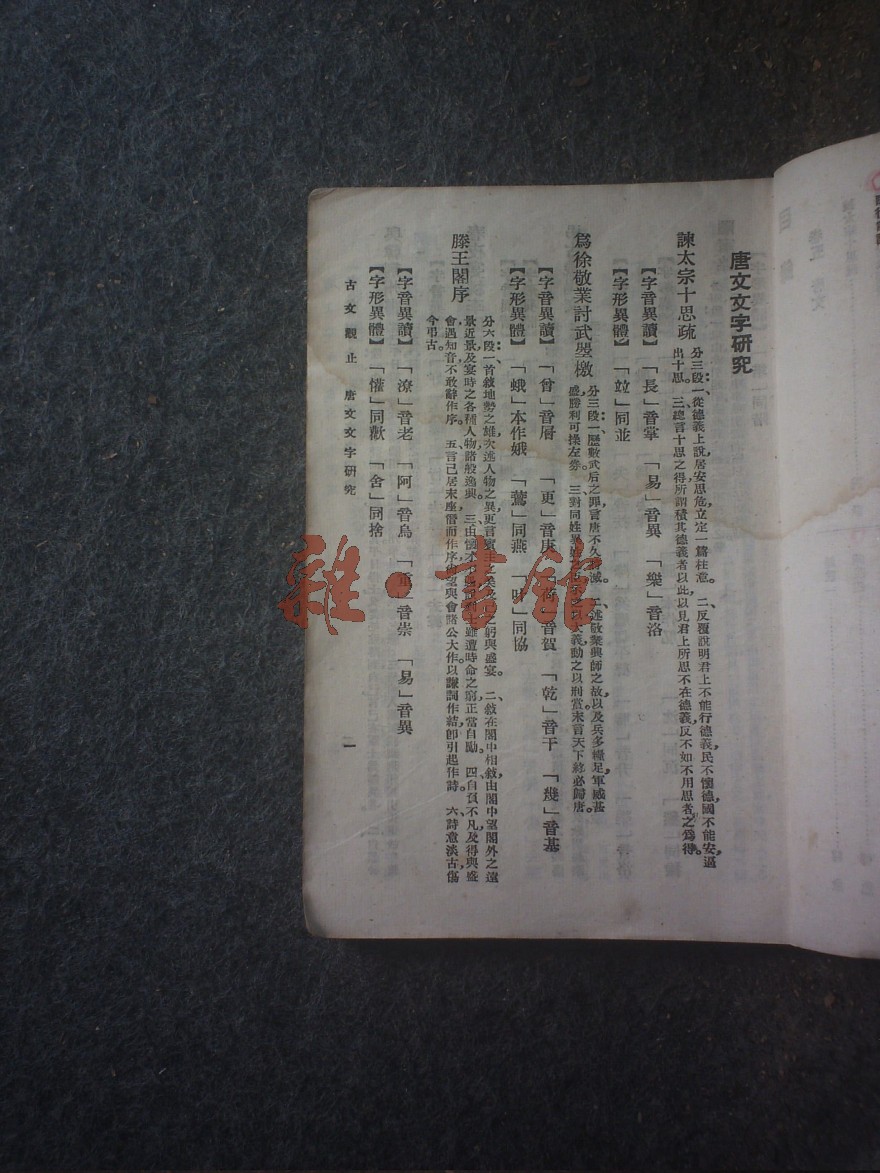 唐文文字研究
諫太宗十思疏
分三段：一、從德義上說，居安思危，立定一篇柱意。二、反覆說明君上不能行德義，民不懷德，國不能安，逼
出十思。三、總言十思之得，所謂積其德義者以此，以見君上所思不在德義，反不如不用思者之爲得。
【字音異讀】「長」音掌　「易」音異　「樂」音洛
【字形異體】「竝」同並
爲徐敬業討武曌檄
分三段：一、歷數武后之罪，言唐不久滅。二、述敬業興師之故，以及兵多糧足，軍威甚
盛，勝利可操左劵。三、對同姓異姓 大義，動之以刑賞，末言天下終必歸唐。
【字音異讀】「曾」音層　「更」音庚 音賀　「乾」音干　「幾」音基
【字形異體】「蛾」本作娥　「鷰」同燕 同協
滕王閣序
分六段：一、首敍地勢之雄，次述人物之異，更言賓主之美 與盛宴。二、敍在閣中相敍，由閣中望閣外之遠
景近景，及宴時之各種人物，諸般逸興。三、由懷才不 雖遭時命之窮，正當自勵。四、自負不凡，及得與盛
會，遇知音，不敢辭作序。五、言己居末座，僭而作序， 望與會諸公大作，以謙詞作結，卽引起作詩。六、詩意淡古，傷
今弔古。
【字音異讀】「潦」音老　「阿」音烏　「重」音崇　「易」音異
【字形異體】「懽」同歡　「舍」同捨
古文觀止　唐文文字研究
一
雜·書館